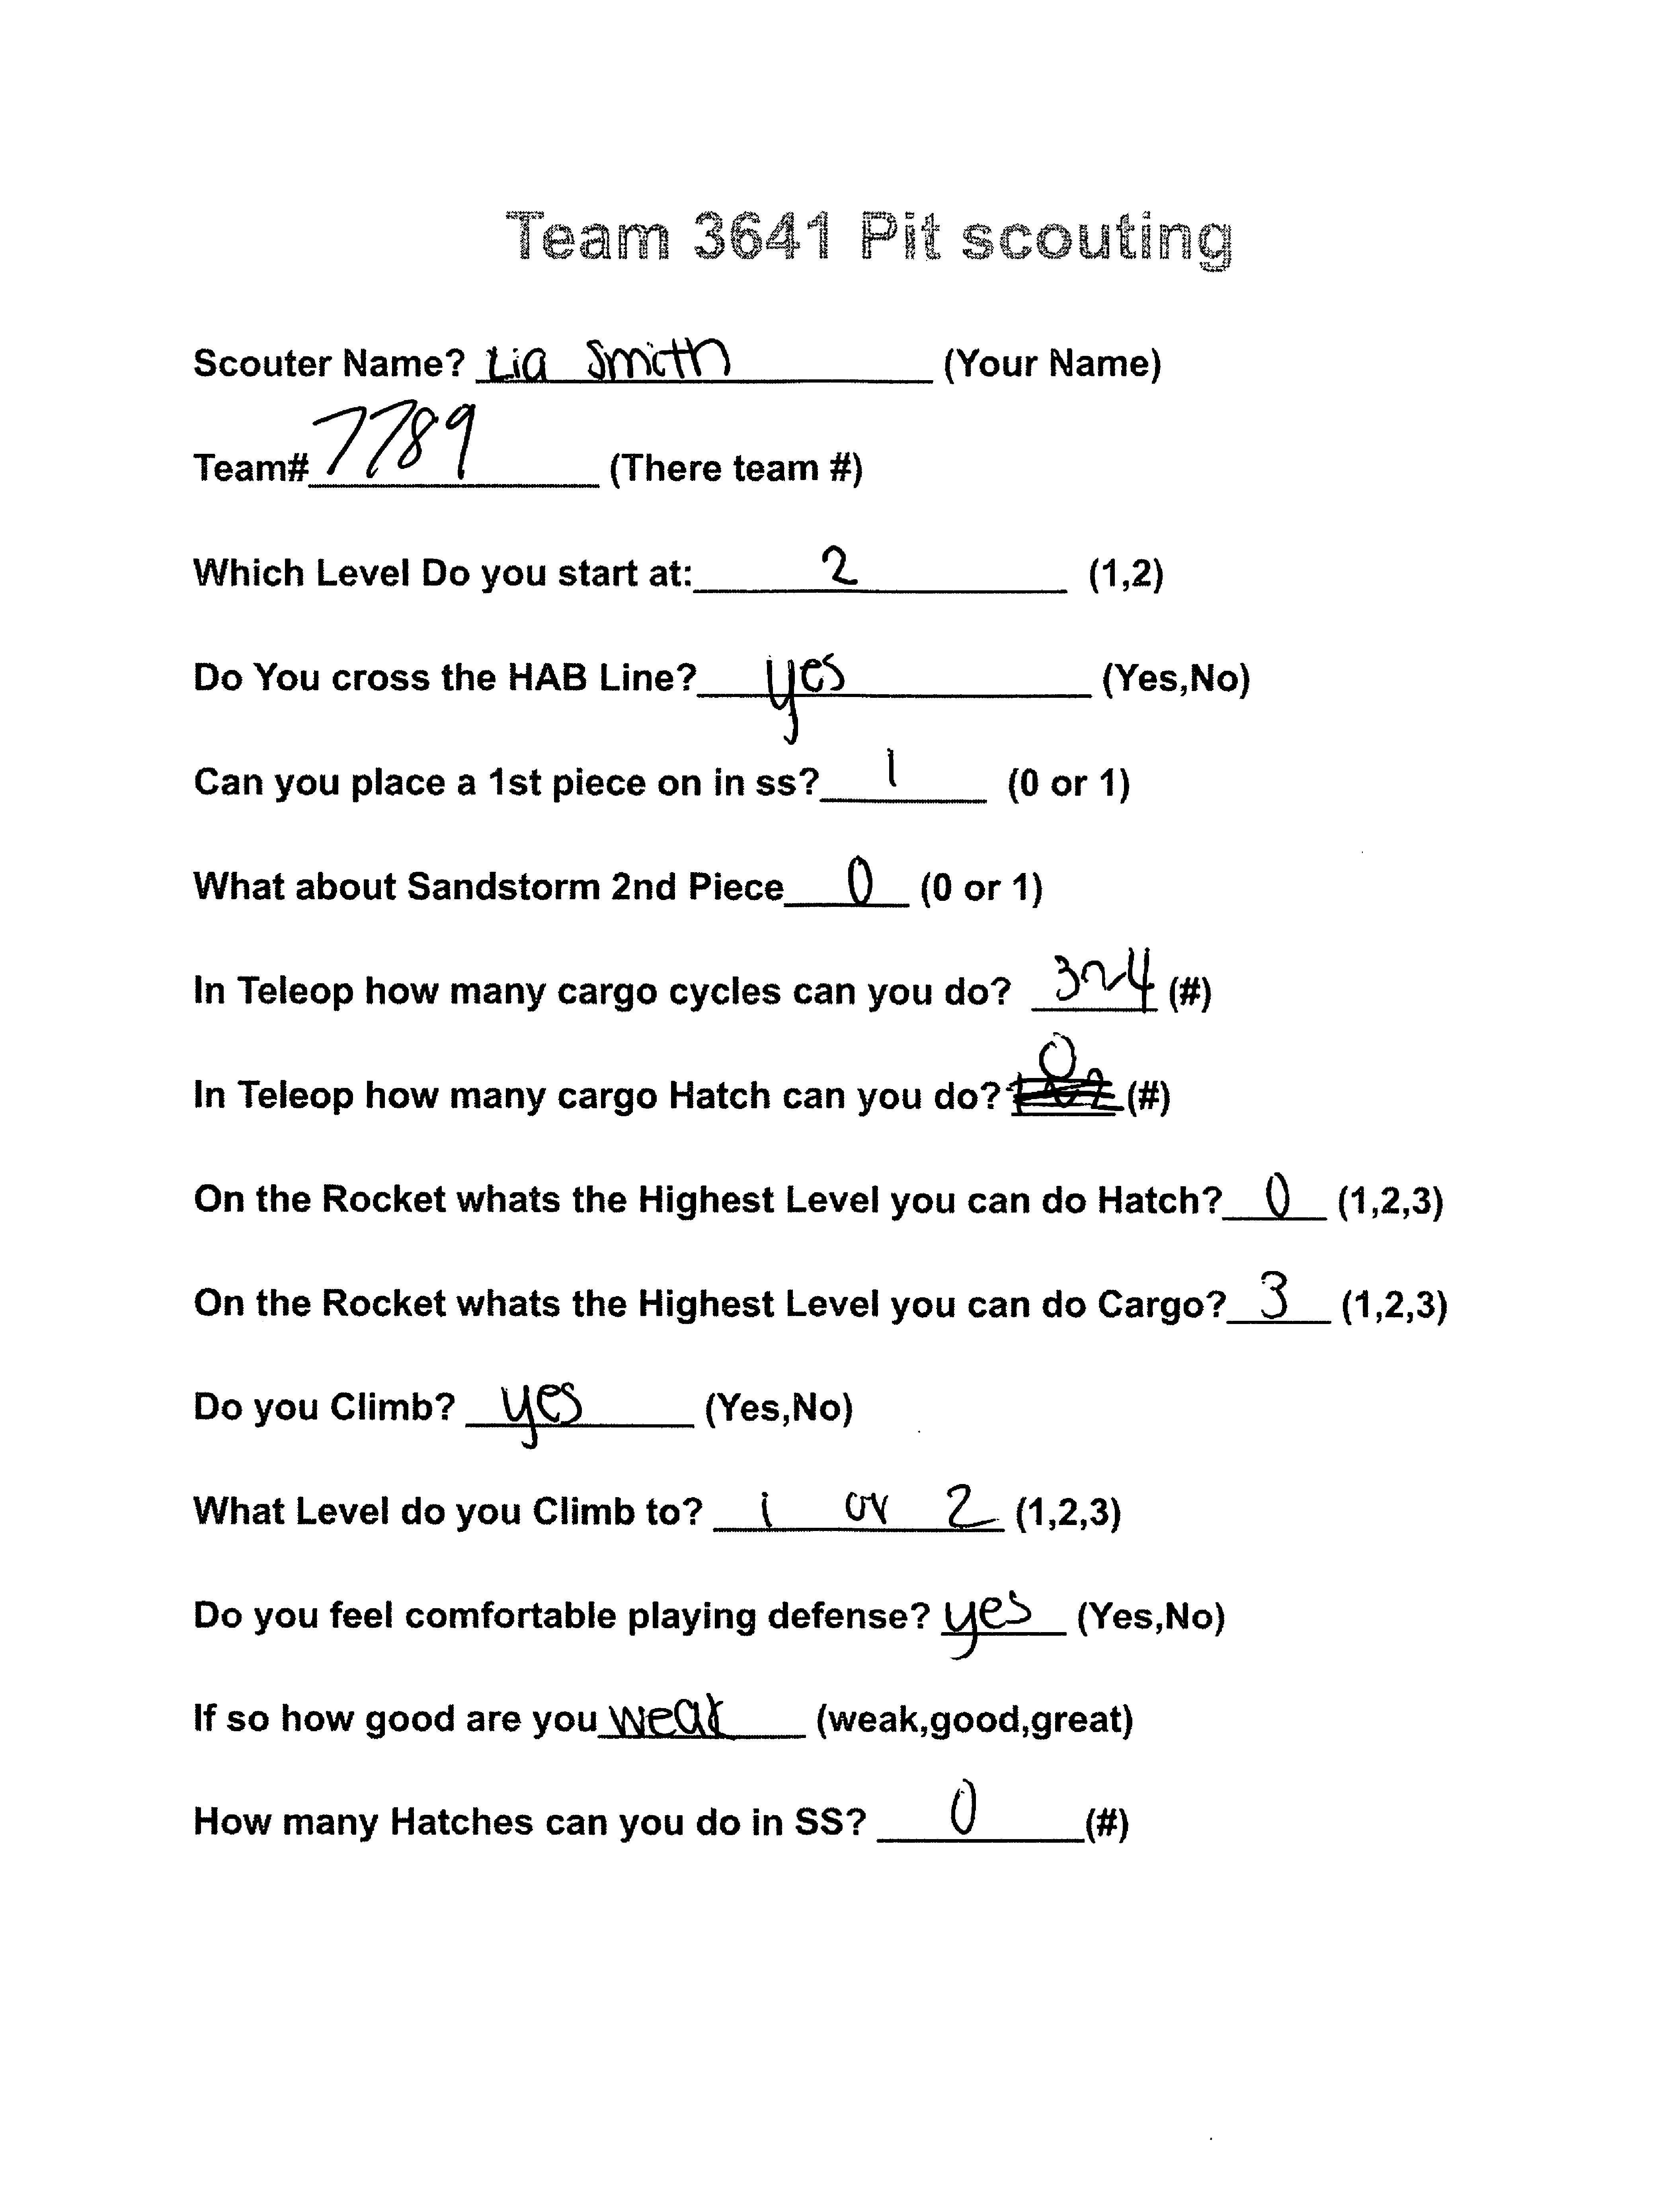 Team 3641 Pit scouting
Scouter Name? Lia Smith (Your Name)
Team# 7789 (There team #)
Which Level Do you start at: 2 (1,2)
Do You cross the HAB Line? yes (Yes,No)
Can you place a 1st piece on in ss? 1 (0 or 1)
What about Sandstorm 2nd Piece 0 (0 or 1)
In Teleop how many cargo cycles can you do? 3~4 (#)
In Teleop how many cargo Hatch can you do? 0 (#)
On the Rocket whats the Highest Level you can do Hatch? 0 (1,2,3)
On the Rocket whats the Highest Level you can do Cargo? 3 (1,2,3)
Do you Climb? yes (Yes,No)
What Level do you Climb to? 1 or 2 (1,2,3)
Do you feel comfortable playing defense? yes (Yes,No)
If so how good are you weak (weak,good,great)
How many Hatches can you do in SS? 0 (#)